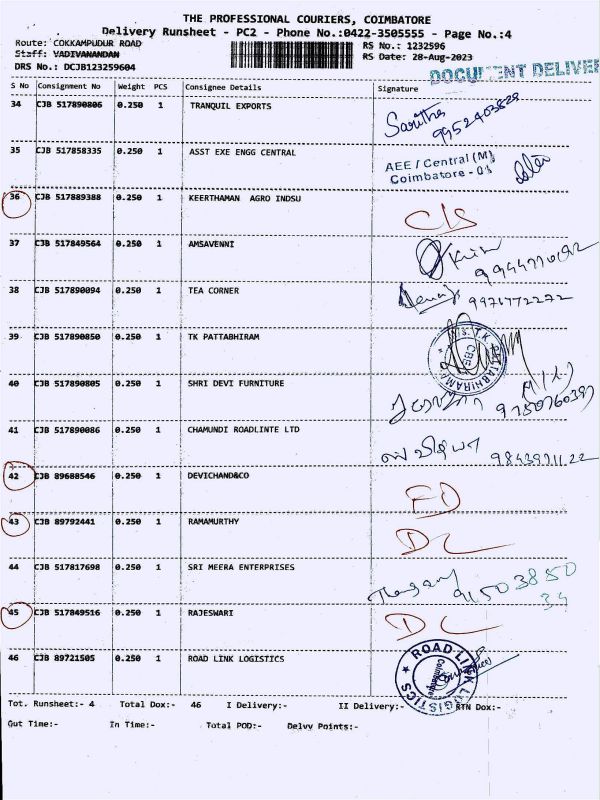 THE PROFESSIONAL COURIERS, COIMBATORE
Delivery Runsheet - PC2 - Phone No.:0422-3505555 - Page No.:4
Route: COKKAMPUDUR ROAD RS No.: 1232596
Staff: VADIVANANDAN RS Date: 28-Aug-2023
DRS No.: DCJB123259604 DOCUMENT DELIVER
S No Consignment No Weight PCS Consignee Details Signature
34 CJB 517890806 0.250 1 TRANQUIL EXPORTS Saritha
9952403829
35 CJB 517858335 0.250 1 ASST EXE ENGG CENTRAL AEE / Central (M)
Coimbatore - 01
36 CJB 517889388 0.250 1 KEERTHAMAN AGRO INDSU C/S
37 CJB 517849564 0.250 1 AMSAVENNI
38 CJB 517890094 0.250 1 TEA CORNER 9971772272
39 CJB 517890850 0.250 1 TK PATTABHIRAM
40 CJB 517890805 0.250 1 SHRI DEVI FURNITURE
41 CJB 517890086 0.250 1 CHAMUNDI ROADLINTE LTD
42 CJB 89688546 0.250 1 DEVICHAND&CO
43 CJB 89792441 0.250 1 RAMAMURTHY DL
44 CJB 517817698 0.250 1 SRI MEERA ENTERPRISES
45 CJB 517849516 0.250 1 RAJESWARI DL
46 CJB 89721505 0.250 1 ROAD LINK LOGISTICS ROAD LINK LOGISTICS Coimbatore
Tot. Runsheet:- 4 Total Dox:- 46 I Delivery:- II Delivery:- RTN Dox:-
Gut Time:- In Time:- Total POD:- Delvy Points:-